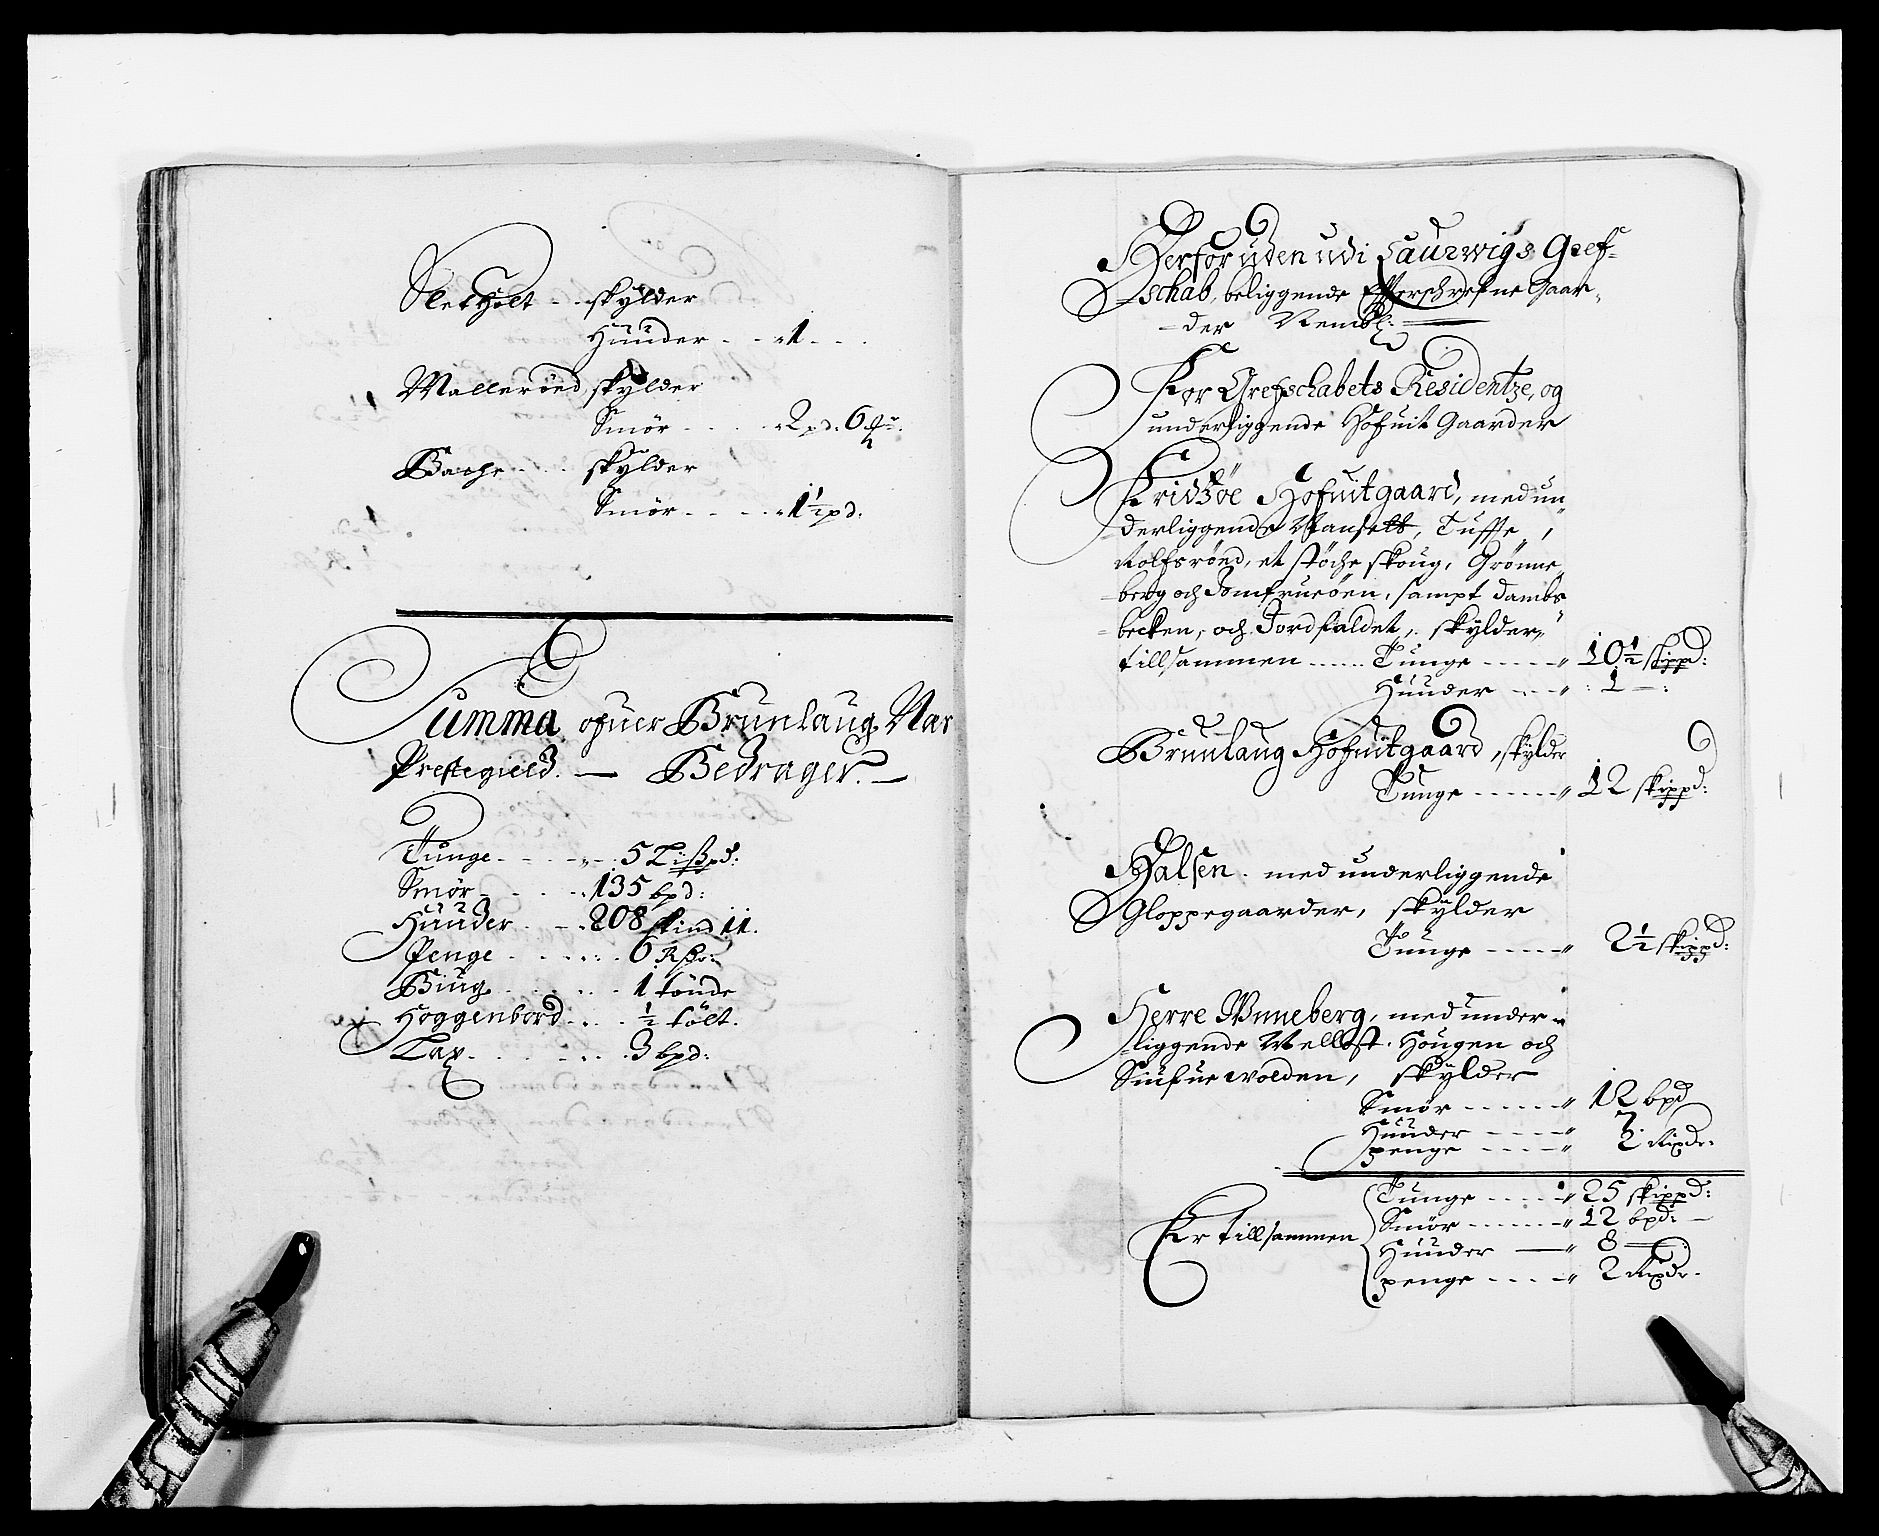 Sletholt - - skylder
Huuder - - - 1 - - -
Malleröed, skylder
Smör - - - - 2 pd. 6
Bache - - - skylder
Smör - - - - 1½ pd.
Summa ofuer Brunlaug Næs
Prestegield. — Bedrager. —
Tunge - - - - - 5 Lißpd:
Smör - - - - - 135 bpd:
Huuder - - - 208 skind 11.
Penge - - - - - 6
Biug - - - - - 1 tönde
Hoggenbord - - - ½ tölt.
Lax - - - - - 3 bpd:
Herforuden udi Laurwigs Gref-
schab, beliggende Effterschrefne Gaar-
der Nembl:
For Grefschabets Residentze, og
underliggende Hofuit Gaarder
Fridzöe Hofuitgaard, med un
derliggende Nansett, Tuffte,
Rolfsröed, et støche skoug, Grønne
berg och Jomfrueöen, sampt dambs
becken, och Jordfaldet, skylder,
tillsammen ...... Tunge - - - - - 10½ skippd:
Huuder - - - - 1 - :
Brunlaug Hofuitgaard, skylder
Tunge - - - - - - 12 skippd:
Halsen med underliggende
Gloppegaarder, skylder
Tunge - - - - - 2½ skippd:
Herre Wnneberg, med under-
liggende Mellöst. Hougen och
skylder
Smör - - - - - - 12 bpd
Huuder - - - - - 7
penge - - - - - 2 Rixdr.
Er tillsammen
Tunge - - - - - 25 skippd:
Smör - - - - - - 12 bpd: -
Huuder — 8 —
penge - - - - - 2 Rixdr.